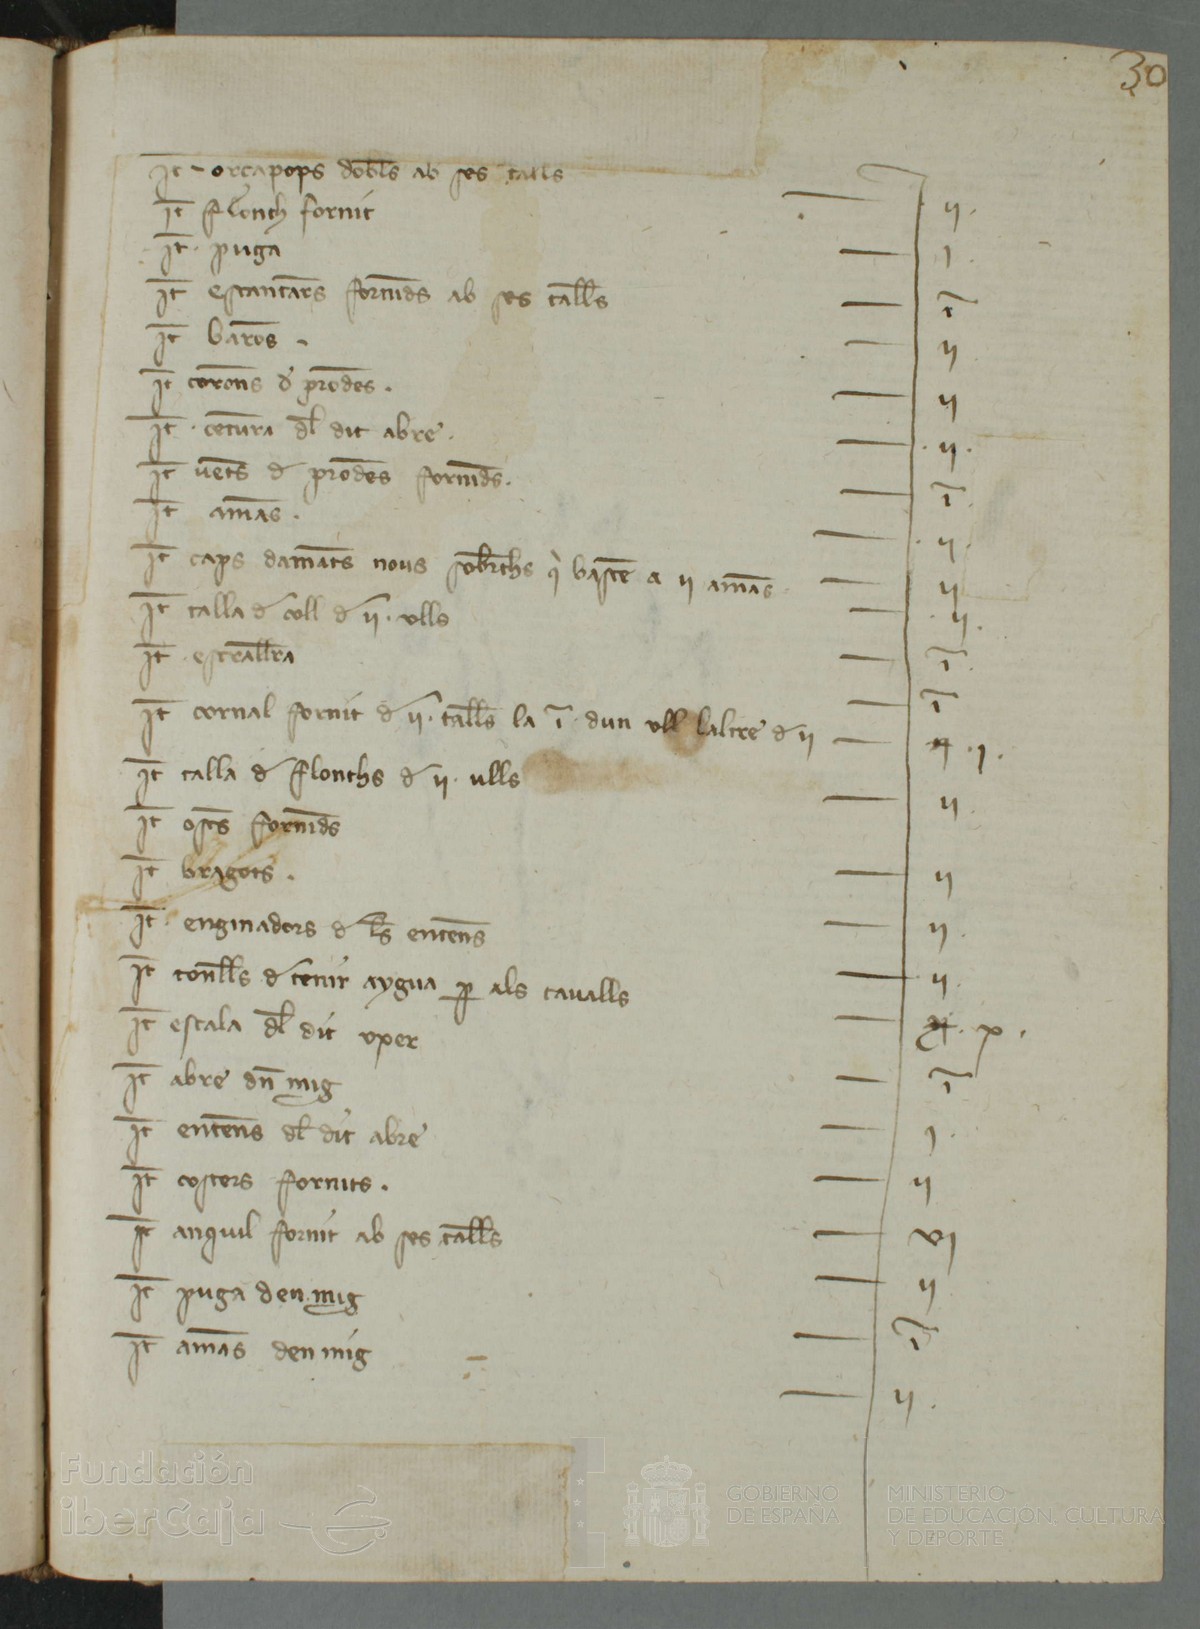 30
It orcapops dobls ab ses talls ii.
It flonch fornit i.
It puga i
It escantars fornids ab ses talls ii
It baros ii
It corons d prodes. ii.
It cetura dl dit abre. i.
It vets d prodes fornids. ii.
It amas. ii
It caps damats nous sobrchs q baste a ii amas ii.
It talla d coll d ii. ulls i.
It escrallra i
It cornal fornit d ii. talls la i. dun ull laltre d ii i.
It talla d flonchs d ii. ulls ii.
It osts fornids ii
It bragots. ii.
It enginadors d ls entens ii.
It tonlls d tenir aygua p als cavalls x.
It escala dl dit uxer i
It abre dn mig i.
It entens dl dit abre ii
It costers fornits. vi
It anquil fornit ab ses talls ii
It puga den mig i
It amas den mig ii.
Fundación
iberCaja
GOBIERNO
DE ESPAÑA
MINISTERIO
DE EDUCACIÓN, CULTURA
Y DEPORTE